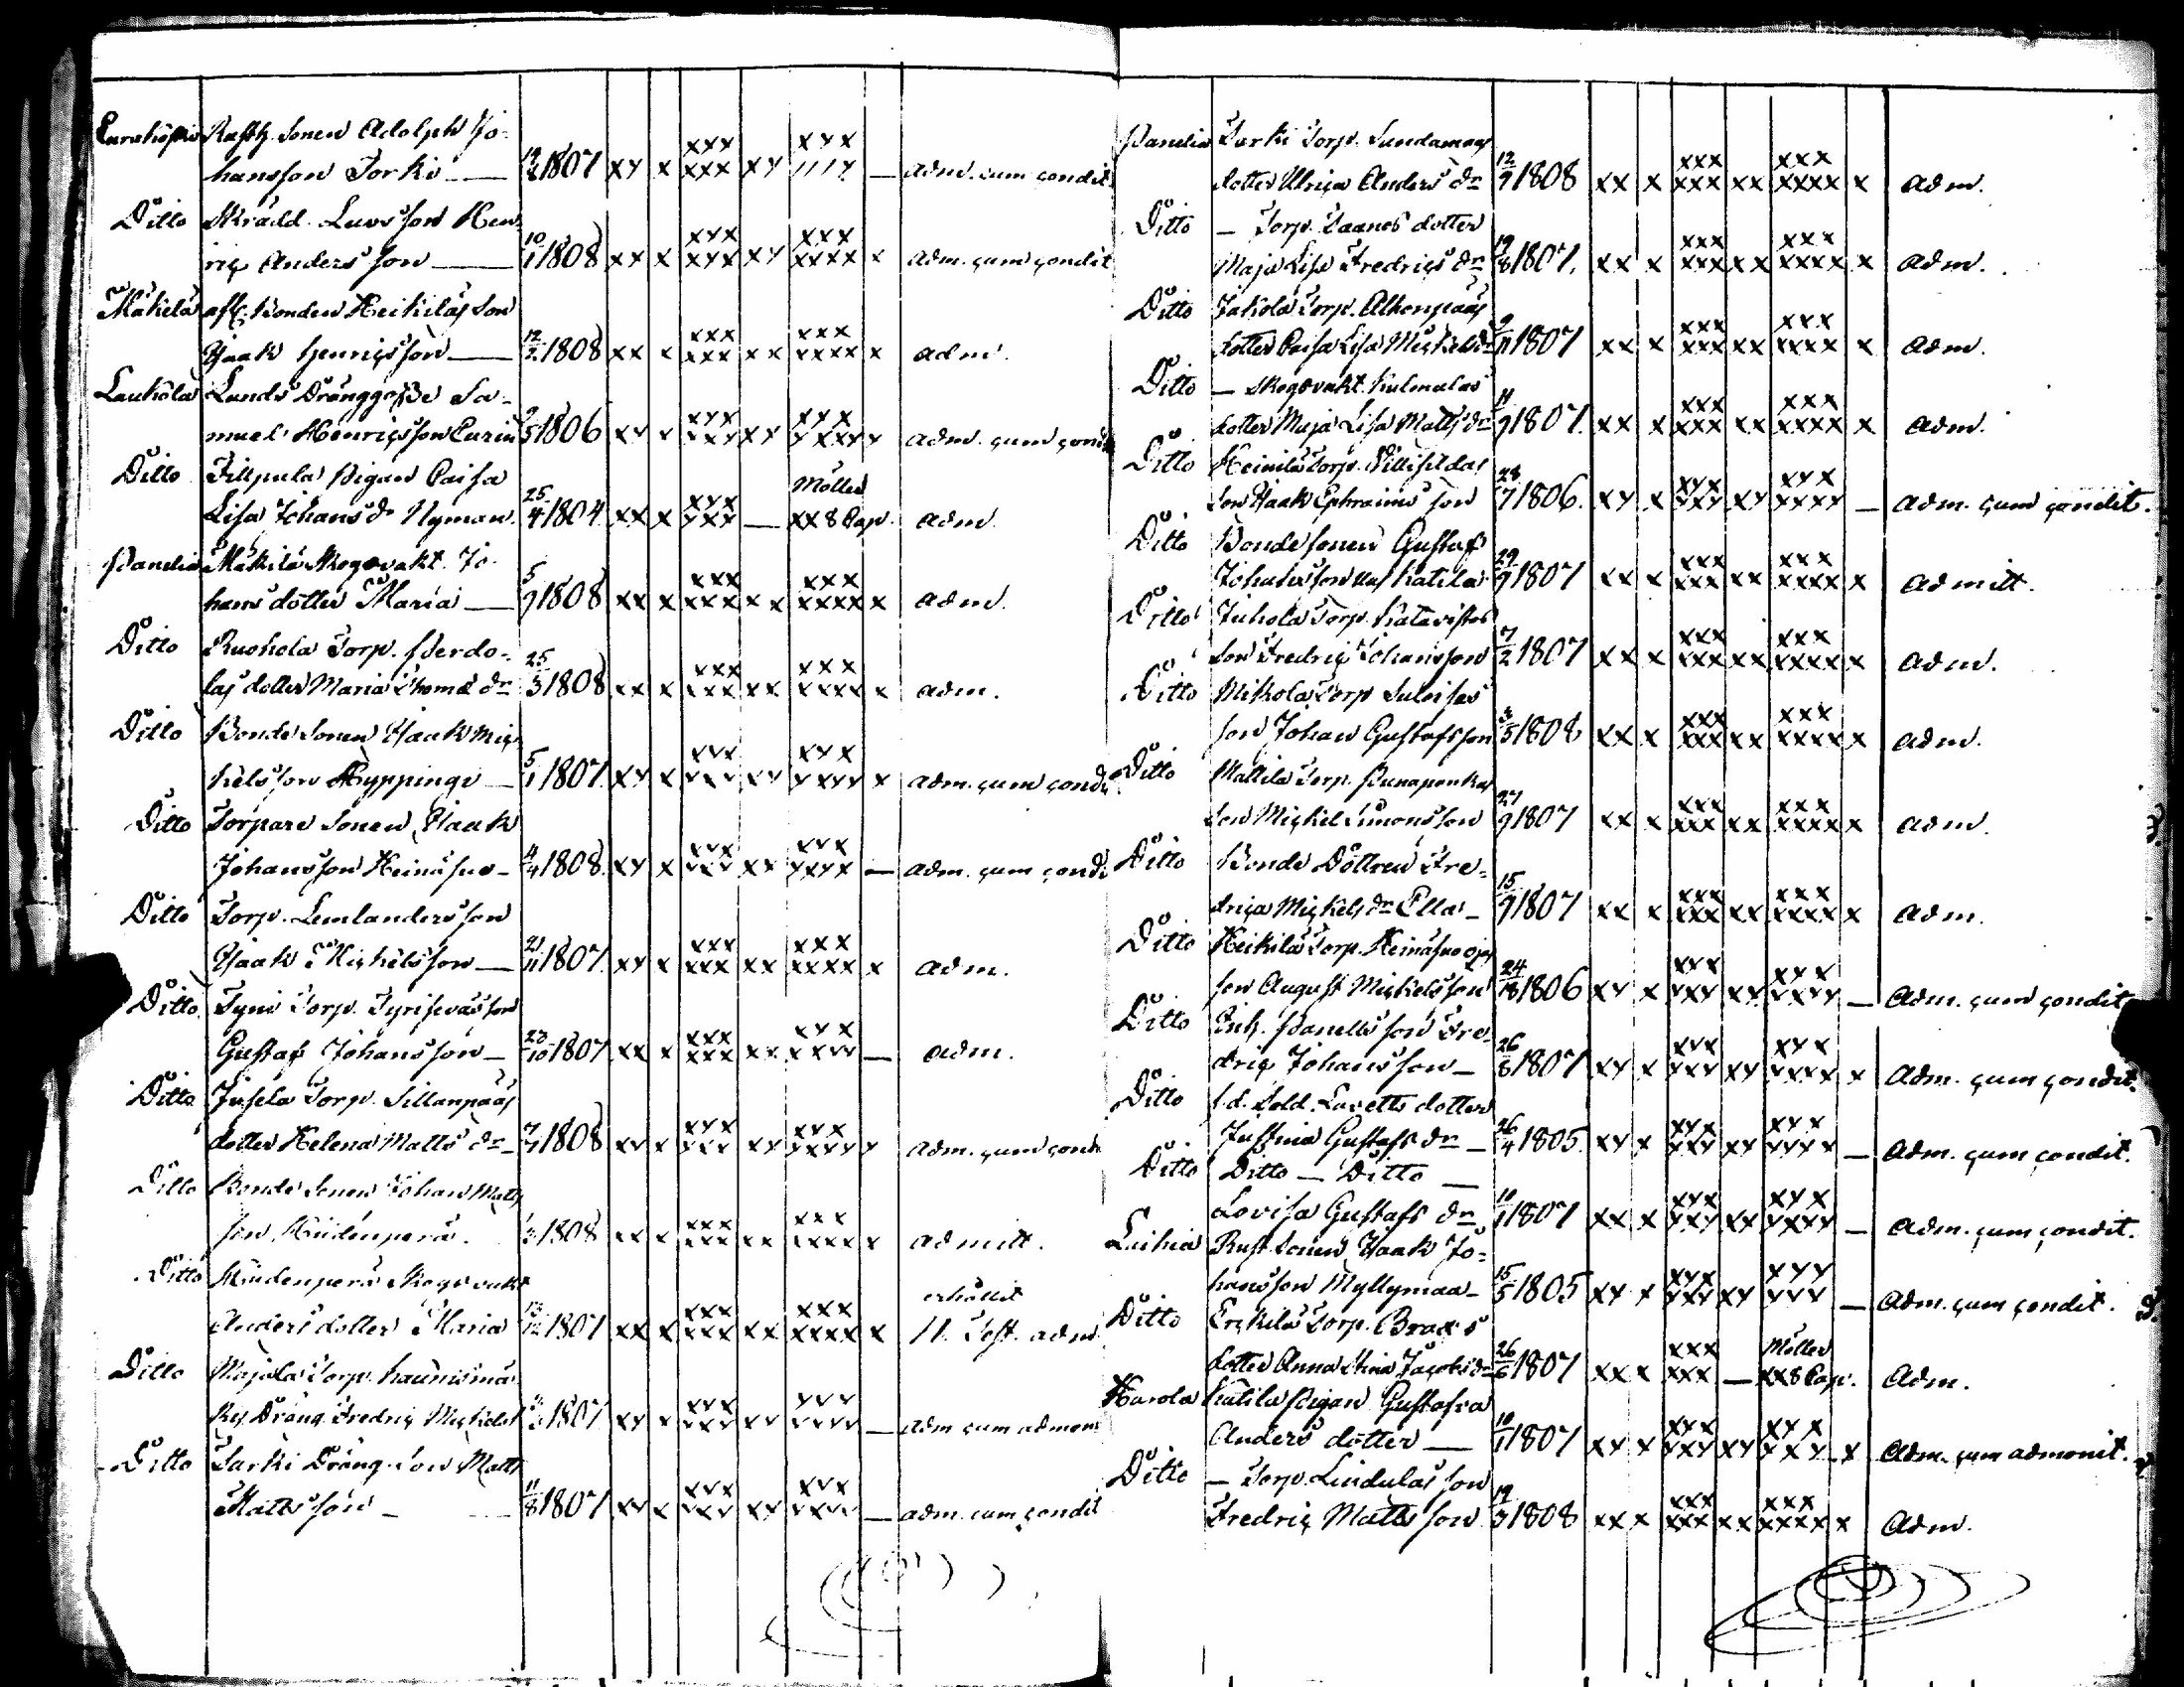 Rusth. Sonen Adolph Jo-
hansson Torki — 1807 xx x xxx xxx xx xxx — adm. cum condit
Ditto Skrädd. Luos son Hen-
ric Andersson — 10/1 1808 xx x xxx xxx xx xxx xxxx x adm. cum condit
Mäkelä afl. Bonden Heikiläs Son
Isaak Henricsson — 12/2 1808 xx x xxx xxx xx xxx xxxx x adm.
Laukola Lunds Dränggosse Sa-
muel Henricsson 1806 xx x xxx xxx xx xxx xxxx adm. cum
Ditto Fillpula Pigan Caisa Möller
Lisa Johans dr Nyman. 25/4 1804 xx x xxx xxx — xx 8 Cap. adm.
Panelia Mäkilä Skogsvakt. Jo-
hans dotter Maria — 5/9 1808 xx x xxx xxx xx xxx xxxx x adm.
Ditto Ruohola Torp. Perdo-
las dotter Maria Thomæ dr 25/3 1808 xx x xxx xxx xx xxx xxxx x adm.
Ditto Bonde Sonen Isaak Mic-
helsson Kyppinge — 5/1 1807. xx x xxx xxx xx xxx xxxx x adm. cum
Ditto Torpare Sonen Isaak
Johansson Heinäsuo — 1808. xx x xxx xxx xx xxx xxxx — adm. cum
Ditto Torp. Lemlanders son
Isaak Michelsson — 21/11 1807. xx x xxx xxx xx xxx xxxx x adm.
Ditto Tyni Torp. son
Gustaf Johansson — 1807 xx x xxx xxx xx xxx xxxx — adm.
Ditto Jusela Torp. Sillanpääs
dotter Helena Matts dr — 1808 xx x xxx xxx xx xxx xxxx x adm. cum
Ditto Bonde Sonen Johan Matts
son 1808 xx x xxx xxx xx xxx xxxx x admitt.
Ditto Skogsvakt erhållit
Anders dotter Maria 1807 xx x xxx xxx xx xxx xxxx x adm
Ditto Majala Torp.
Dräng Fredric Michels 1807 xx x xxx xxx xx xxx xxxx — adm cum admon
Ditto Tarki Dräng. Son Matts
Mattsson — 11/8 1807 xx x xxx xxx xx xxx xxxx — adm. cum condit
Panelia Tarki Torp. Sundamaas
dotter Ulrica Anders dr 12/9 1808 xx x xxx xxx xx xxx xxxx x adm.
Ditto — Torp. Laanes dotter
Maja Lisa Fredrics dr 19/8 1807. xx x xxx xxx xx xxx xxxx x adm.
Ditto Jakola Torp. Alhonpääs
dotter Caisa Lisa Michels dr 9/11 1807 xx x xxx xxx xx xxx xxxx x adm.
Ditto — Skogsvakt. Kulmalas
dotter Maja Lisa Matts dr 11/9 1807. xx x xxx xxx xx xxx xxxx x adm.
Ditto Heinilä Torp.
son Isaak Ephraims son 28/7 1806. xx x xxx xxx xx xxx xxxx — adm. cum condit.
Ditto Bonde sonen Gustaf
Johansson Katila 29/9 1807 xx x xxx xxx xx xxx xxxx x admitt.
Ditto Juhola Torp. Katavistos
son Fredric Johansson 7/2 1807 xx x xxx xxx xx xxx xxxx x adm.
Ditto Mikola Torp
son Johan Gustafsson 1808 xx x xxx xxx xx xxx xxxx x adm.
Ditto Mattila Torp. Punaponkas
son Michel Simonsson 27/9 1807 xx x xxx xxx xx xxx xxxx x adm.
Ditto Bonde Dottren Fre-
drica Michels dr Ella — 15/9 1807 xx x xxx xxx xx xxx xxxx x adm.
Ditto Heikilä Torp. Heinäsuo ojas
son August Michelsson 1806 xx x xxx xxx xx xxx xxxx — adm. cum condit
Ditto Enk. Panells son Fre-
dric Johansson — 26/8 1807 xx x xxx xxx xx xxx xxxx x adm. cum condit.
Ditto f.d. Sold. Lavetts dotter
Justina Gustafs dr — 26/4 1805. xx x xxx xxx xx xxx xxxx — adm. cum condit.
Ditto Ditto — Ditto —
Lovisa Gustafs dr 1807 xx x xxx xxx xx xxx xxxx — adm. cum condit.
Rust. Sonen Isaak Jo-
hansson Myllymaa — 15/5 1805 xx x xxx xxx xx xxx xxx — adm. cum condit.
Ditto Erkilä Torp. Bracks Möller
dotter Anna Stina Jacobs dr 26/6 1807 xx x xxx xxx — xx 8 Cap. Adm.
Harola Katila Pigan Gustafva
Anders dotter — 1807 xx x xxx xxx xx xxx xxx x Adm. cum admonit.
Ditto — Torp. Lindulas son
Fredric Mattsson 19/3 1808 xx x xxx xxx xx xxx xxxx x Adm.